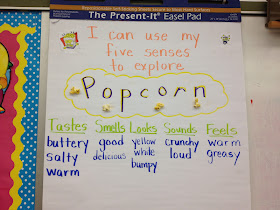 The Present-It® Easel Pad
I can use my
five senses
to explore
Popcorn
Tastes Smells Looks Sounds Feels
buttery good yellow crunchy warm
salty delicious white loud greasy
warm bumpy